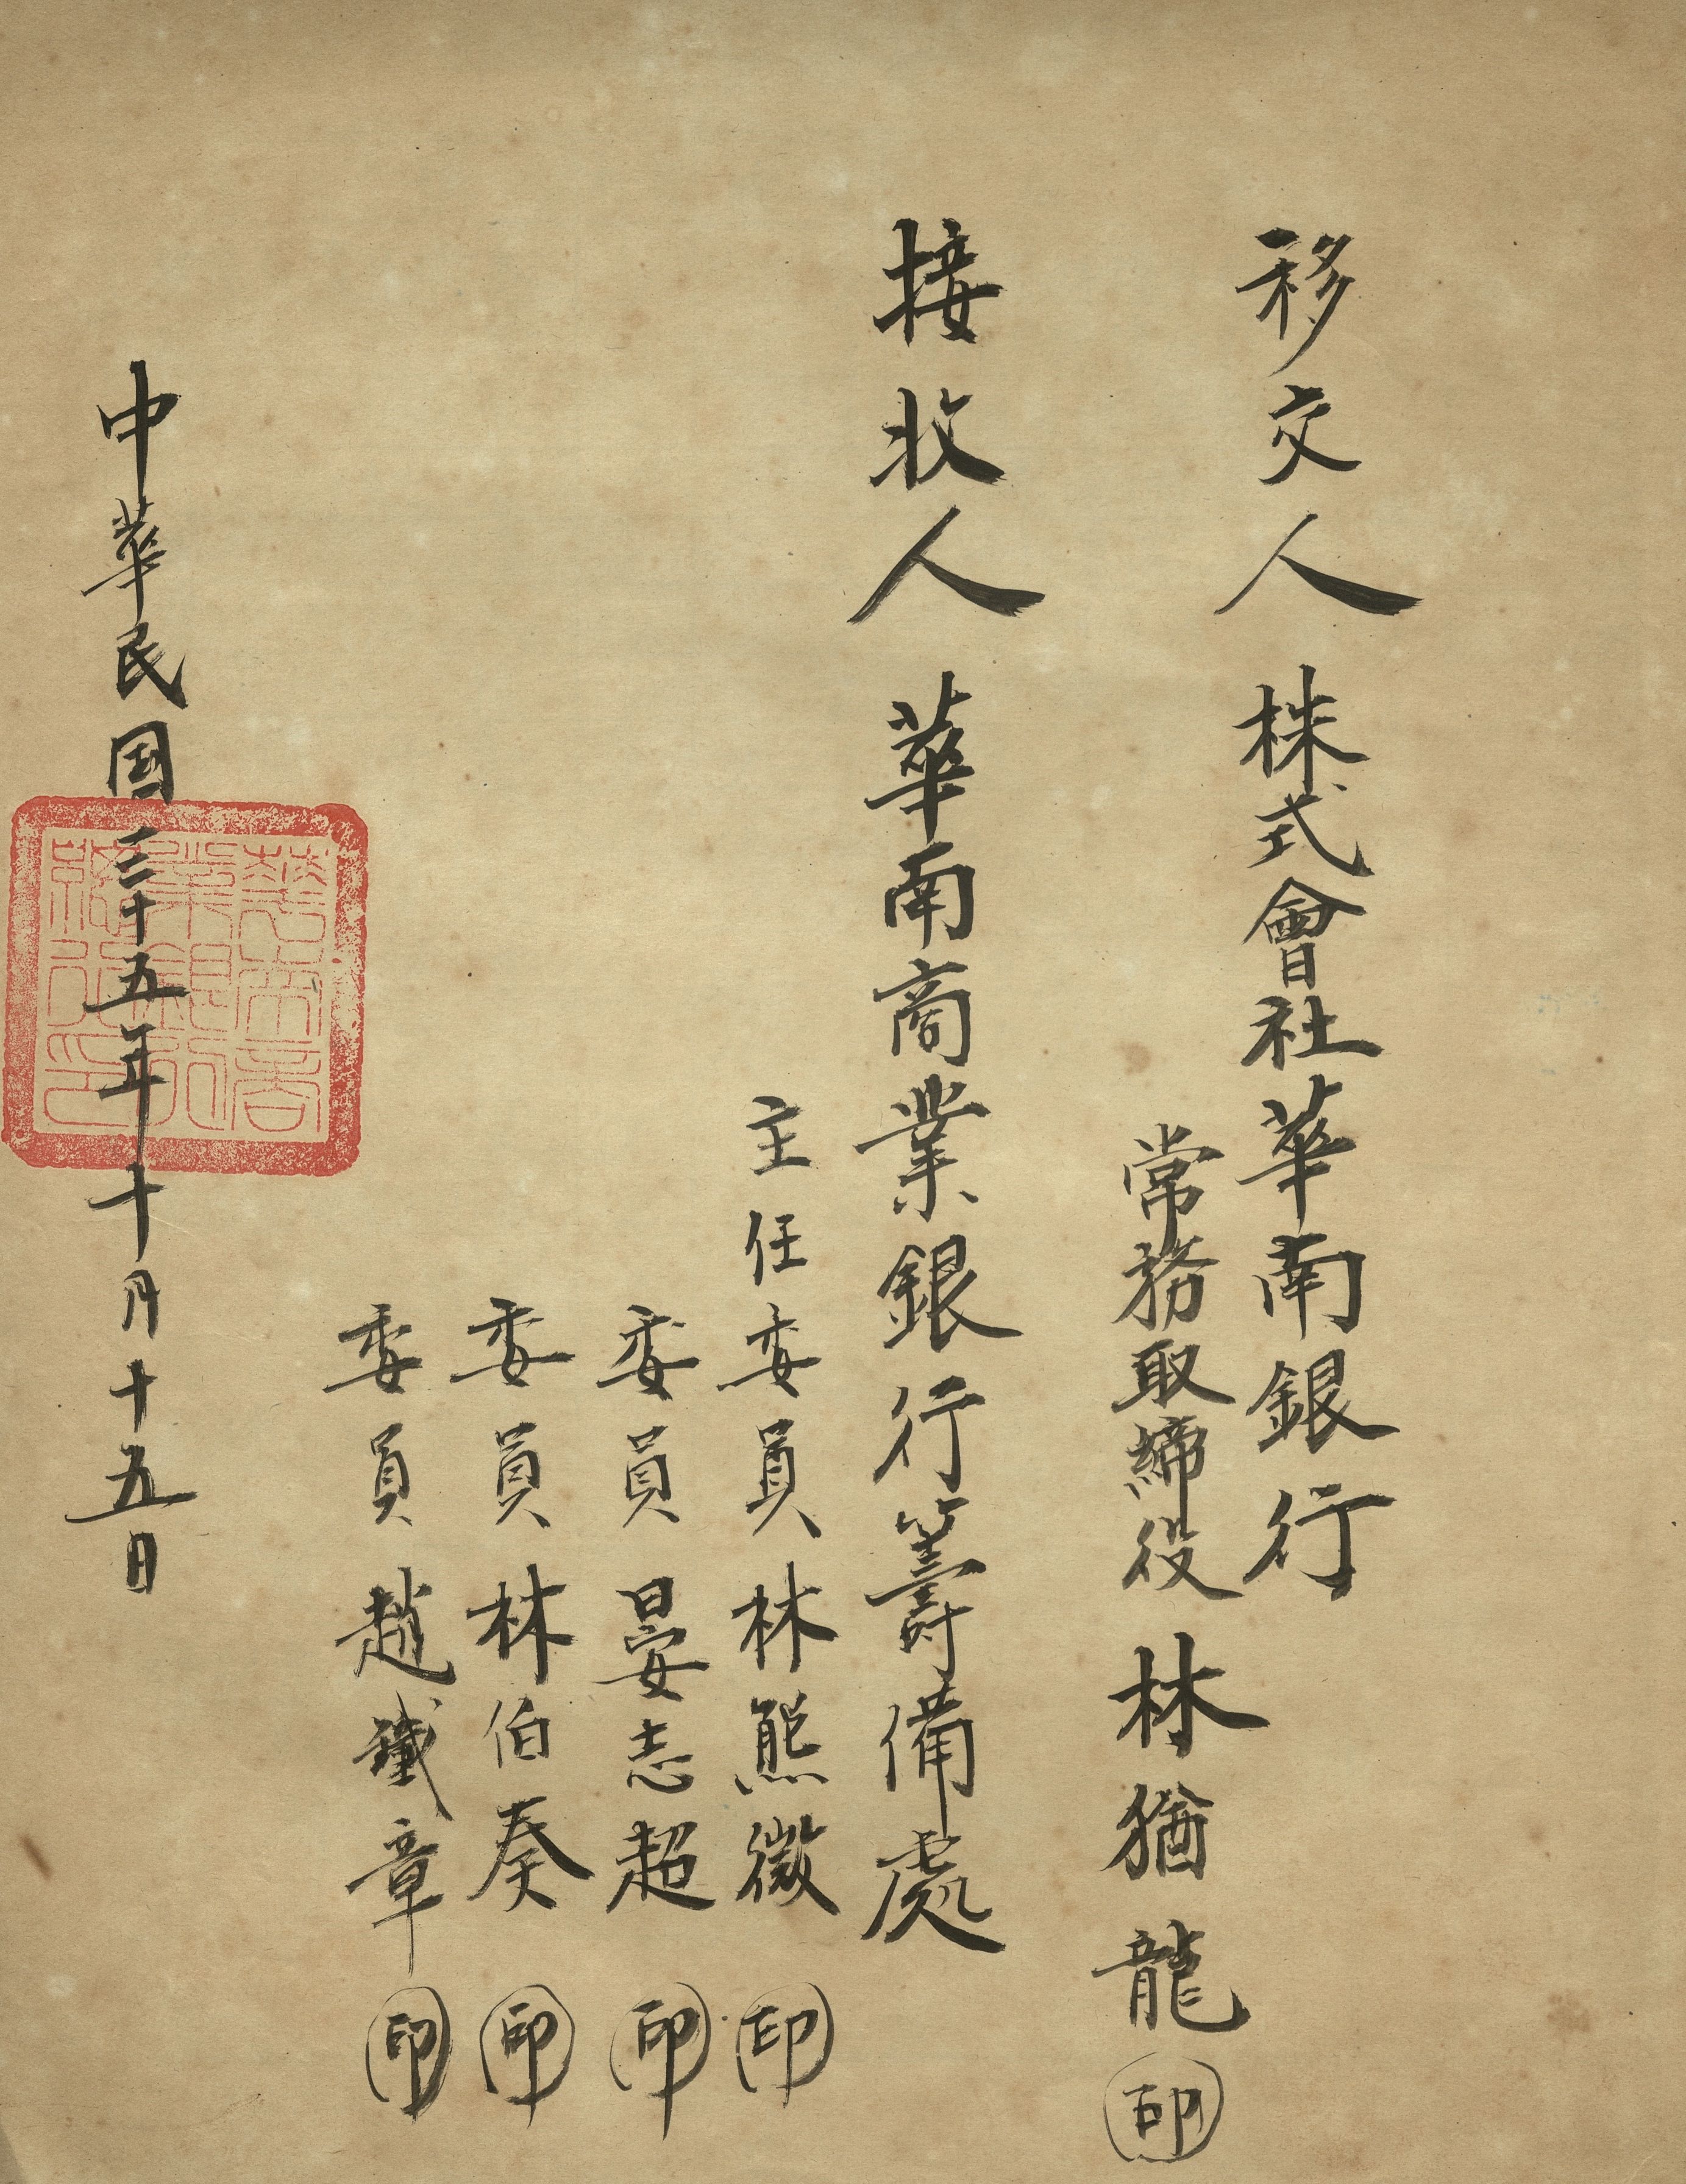 移交人 株式會社華南銀行
常務取締役 林猶龍 印
接收人 華南商業銀行籌備處
主任委員 林熊徵 印
委員 晏志超 印
委員 林伯奏 印
委員 趙鐵章 印
中華民国三十五年十月十五日